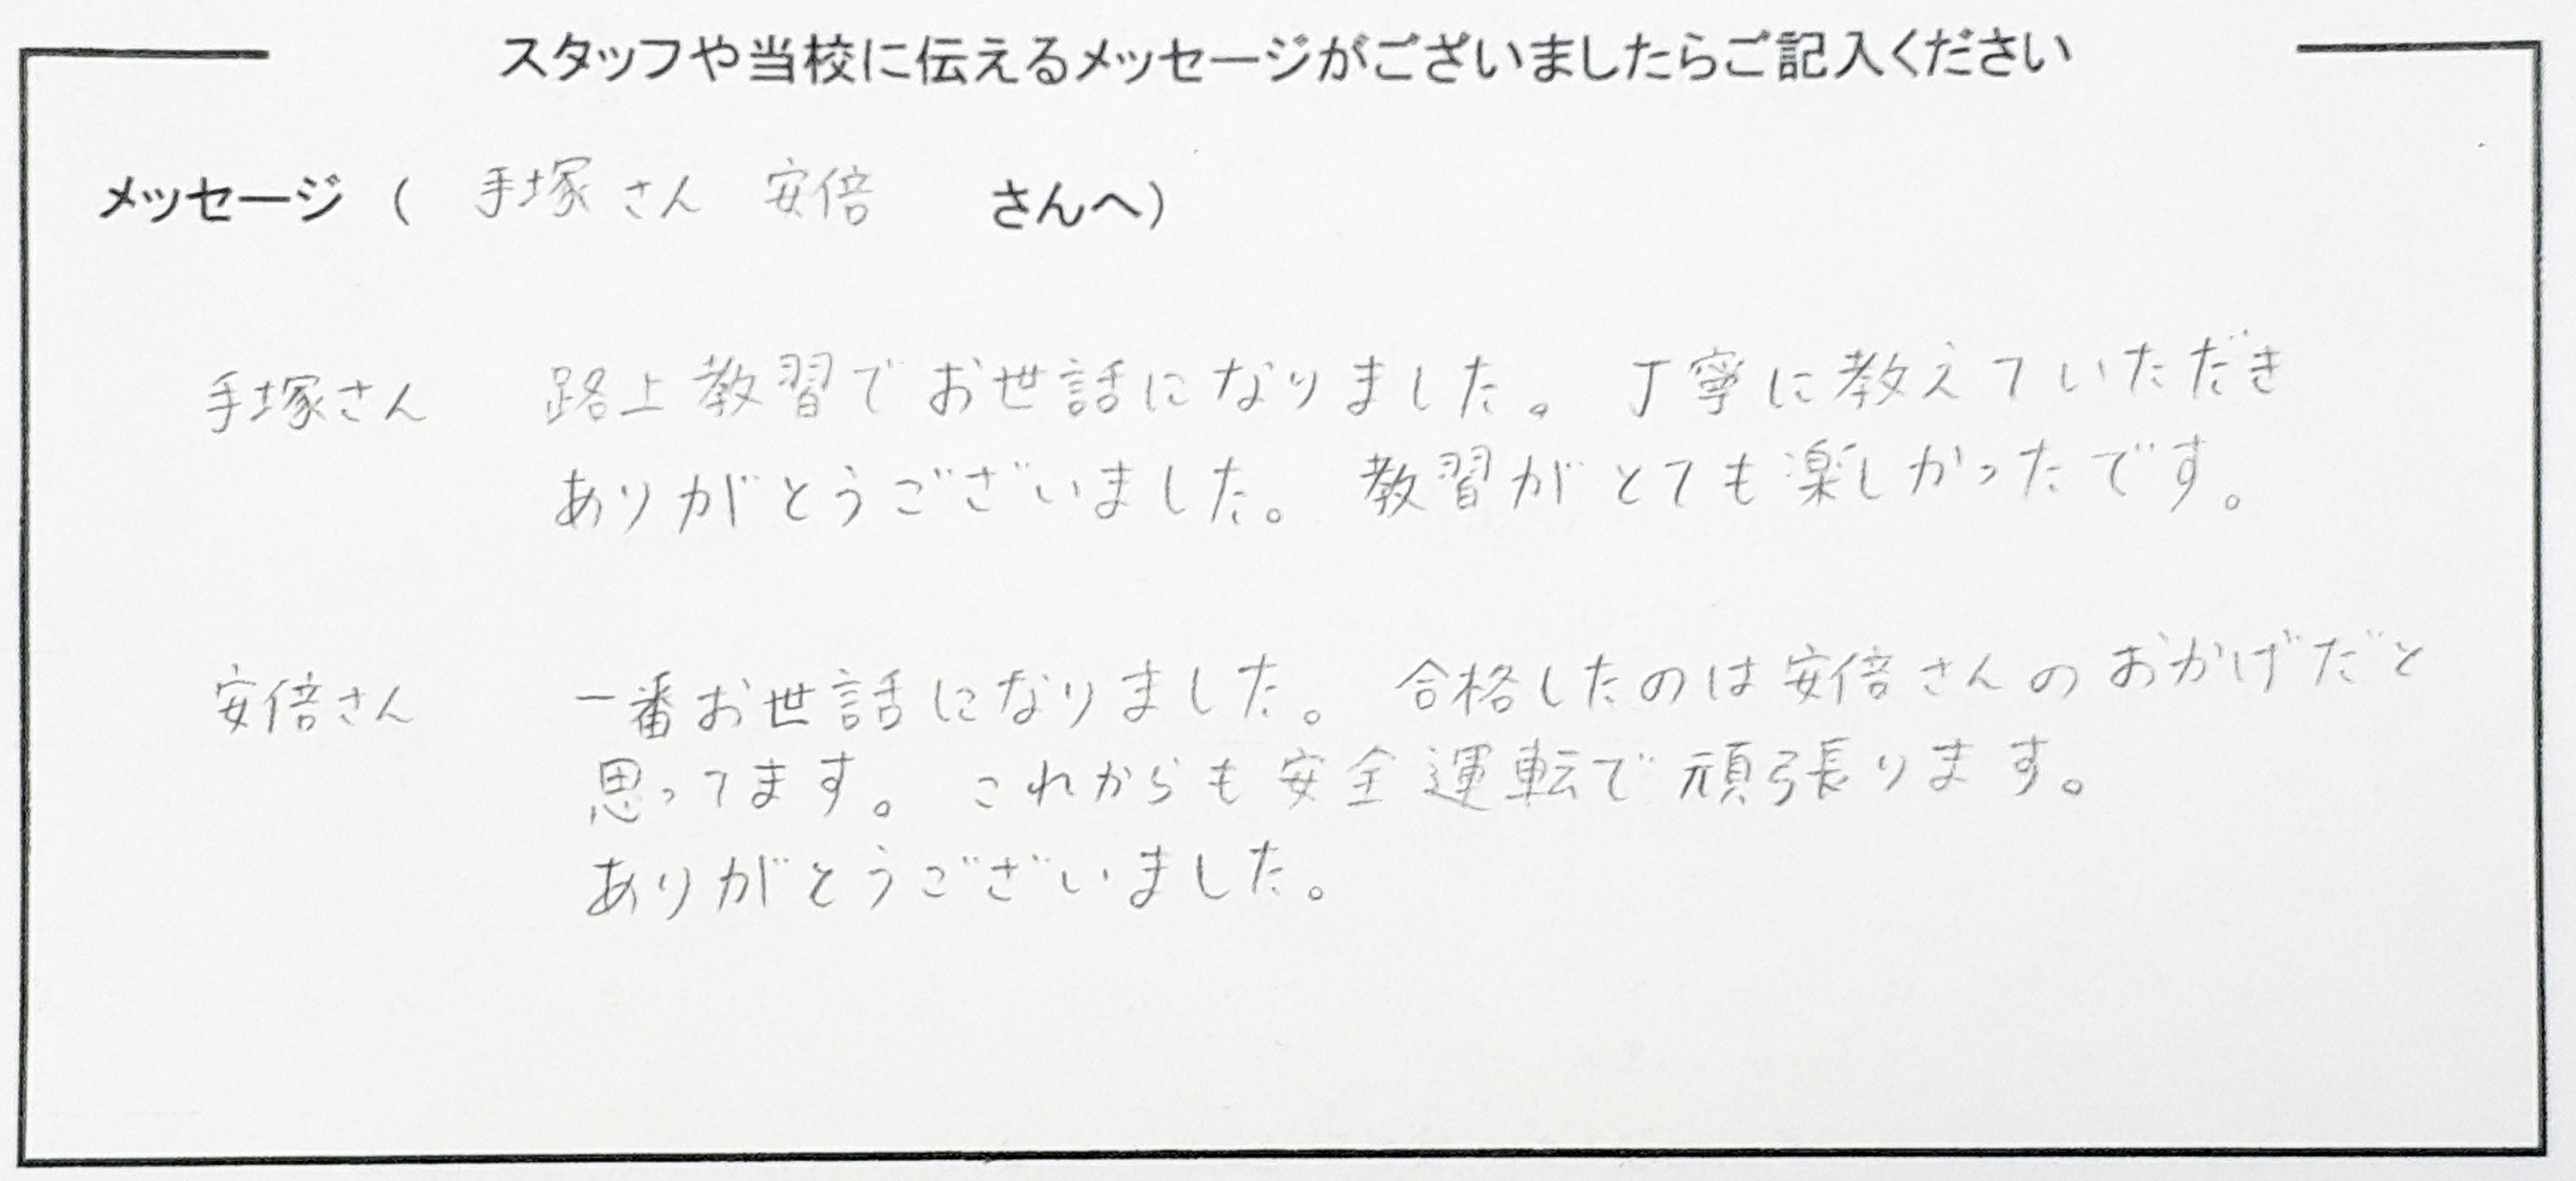 スタッフや当校に伝えるメッセージがございましたらご記入ください
メッセージ ( 手塚さん 安倍 さんへ)
手塚さん 路上教習でお世話になりました。丁寧に教えていただき
ありがとうございました。教習がとても楽しかったです。
安倍さん 一番お世話になりました。合格したのは安倍さんのおかげだと
思ってます。これからも安全運転で頑張ります。
ありがとうございました。